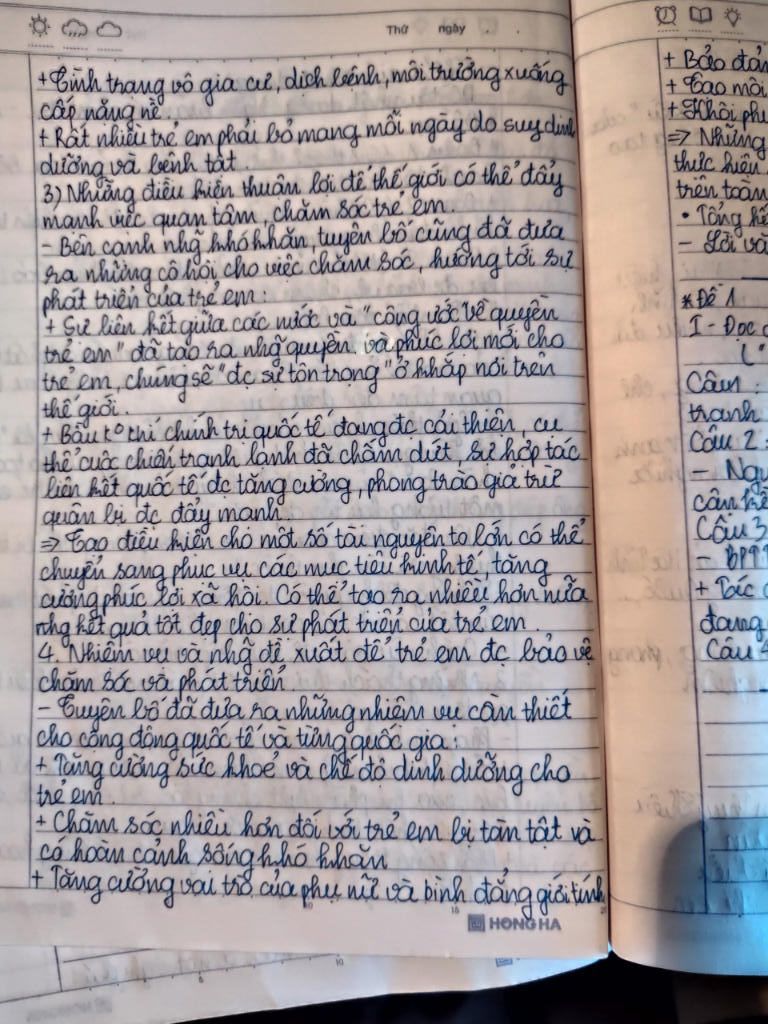 Thứ ngày
+ Tình trạng vô gia cư, dịch bệnh, môi trường xuống
cấp nặng nề.
+ Rất nhiều trẻ em phải bỏ mạng mỗi ngày do suy dinh
dưỡng và bệnh tật.
3) Những điều kiện thuận lợi để thế giới có thể đẩy
mạnh việc quan tâm, chăm sóc trẻ em.
- Bên cạnh nhg̃ khó khăn, tuyên bố cũng đã đưa
ra những cơ hội cho việc chăm sóc, hướng tới sự
phát triển của trẻ em:
+ Sự liên kết giữa các nước và "công ước về quyền
trẻ em" đã tạo ra nhg̃ quyền và phúc lợi mới cho
trẻ em, chúng sẽ "đc sự tôn trọng" ở khắp nơi trên
thế giới.
+ Bầu k° khí chính trị quốc tế đang đc cải thiện, cụ
thể cuộc chiến tranh lạnh đã chấm dứt, sự hợp tác
liên kết quốc tế đc tăng cường, phong trào giải trừ
quân bị đc đẩy mạnh
=> Tạo điều kiện cho một số tài nguyên to lớn có thể
chuyển sang phục vụ các mục tiêu kinh tế, tăng
cường phúc lợi xã hội. Có thể tạo ra nhiều hơn nữa
nhg kết quả tốt đẹp cho sự phát triển của trẻ em.
4. Nhiệm vụ và nhg̃ đề xuất để trẻ em đc bảo vệ
chăm sóc và phát triển
- Tuyên bố đã đưa ra những nhiệm vụ cần thiết
cho cộng đồng quốc tế và từng quốc gia:
+ Tăng cường sức khoẻ và chế độ dinh dưỡng cho
trẻ em.
+ Chăm sóc nhiều hơn đối với trẻ em bị tàn tật và
có hoàn cảnh sống khó khăn
+ Tăng cường vai trò của phụ nữ và bình đẳng giới tính
HONG HA
+ Bảo đảm
+ Tạo môi
+ Khôi phụ
=> Những
thực hiện
trên toàn
• Tổng kế
- Lời vă
*Đề 1
I - Đọc
Câu 1:
tranh
Câu 2:
- Ngu
cận kề
Câu 3
- BPTT
+ Tác
đang
Câu 4